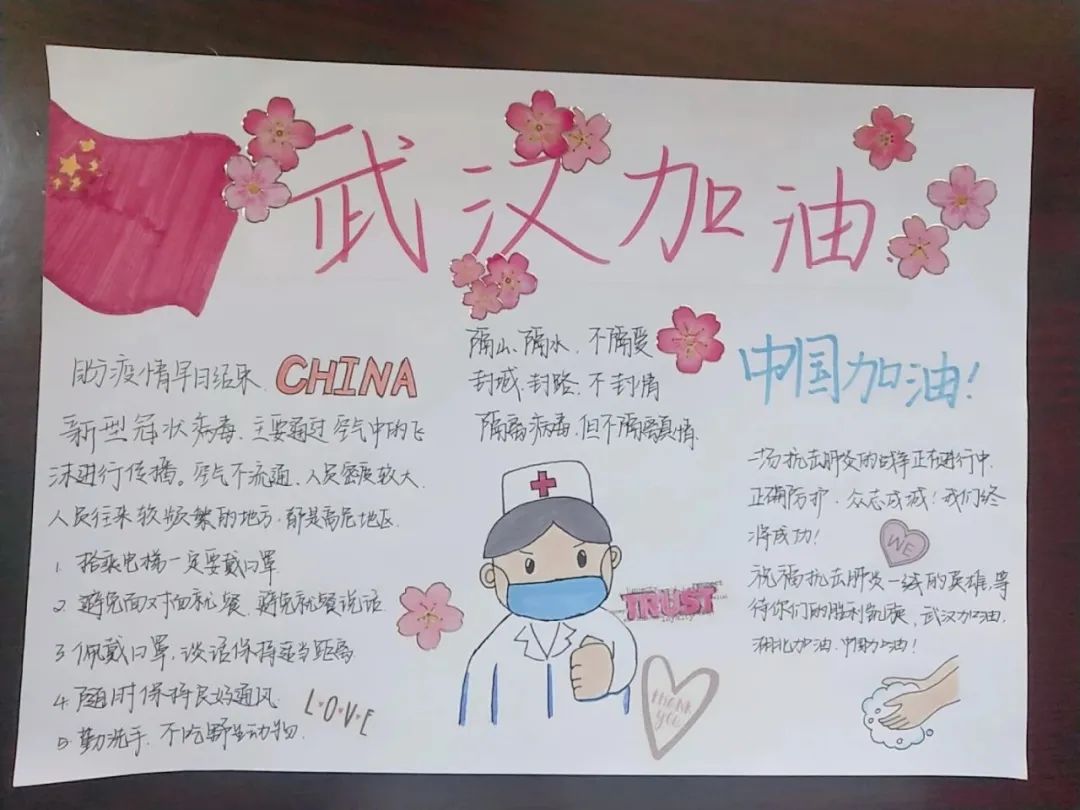 武汉加油
助力疫情早日结束
CHINA
新型冠状病毒、主要通过空气中的飞
沫进行传播。空气不流通、人员密度较大、
人员往来较频繁的地方,都是高危地区.
1. 搭乘电梯一定要戴口罩
2. 避免面对面就餐、避免就餐说话
3. 佩戴口罩,谈话保持适当距离
4. 随时保持良好通风
5. 勤洗手、不吃野生动物.
LOVE
隔山、隔水、不隔爱
封城、封路、不封情
隔离病毒、但不隔离真情.
TRUST
THANK
YOU
中国加油!
一场抗击肺炎的战争正在进行中.
正确防护、众志成城!我们终
将成功!
WE
祝福抗击肺炎一线的英雄,等
待你们的胜利凯旋,武汉加油,
湖北加油、中国加油!